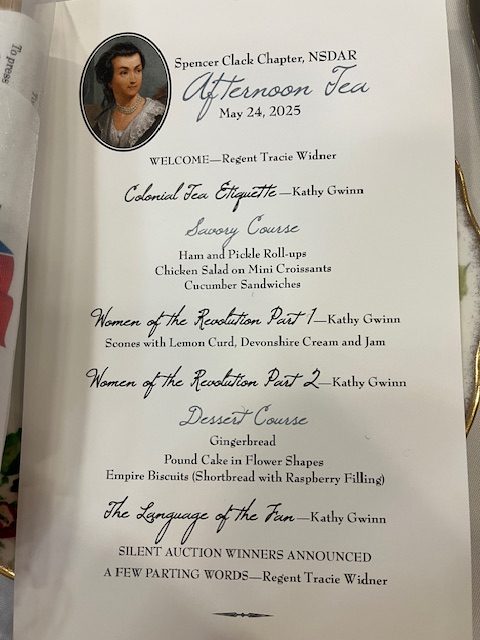 To press
Spencer Clack Chapter, NSDAR
Afternoon Tea
May 24, 2025
WELCOME—Regent Tracie Widner
Colonial Tea Etiquette—Kathy Gwinn
Savory Course
Ham and Pickle Roll-ups
Chicken Salad on Mini Croissants
Cucumber Sandwiches
Women of the Revolution Part 1—Kathy Gwinn
Scones with Lemon Curd, Devonshire Cream and Jam
Women of the Revolution Part 2—Kathy Gwinn
Dessert Course
Gingerbread
Pound Cake in Flower Shapes
Empire Biscuits (Shortbread with Raspberry Filling)
The Language of the Fan—Kathy Gwinn
SILENT AUCTION WINNERS ANNOUNCED
A FEW PARTING WORDS—Regent Tracie Widner